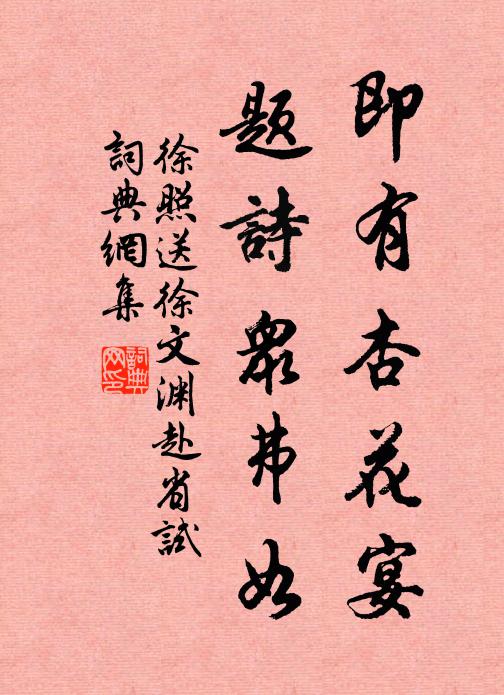 即有杏花宴
題詩眾弗如
徐照送徐文淵赴省試
詞典網集
詞典网印